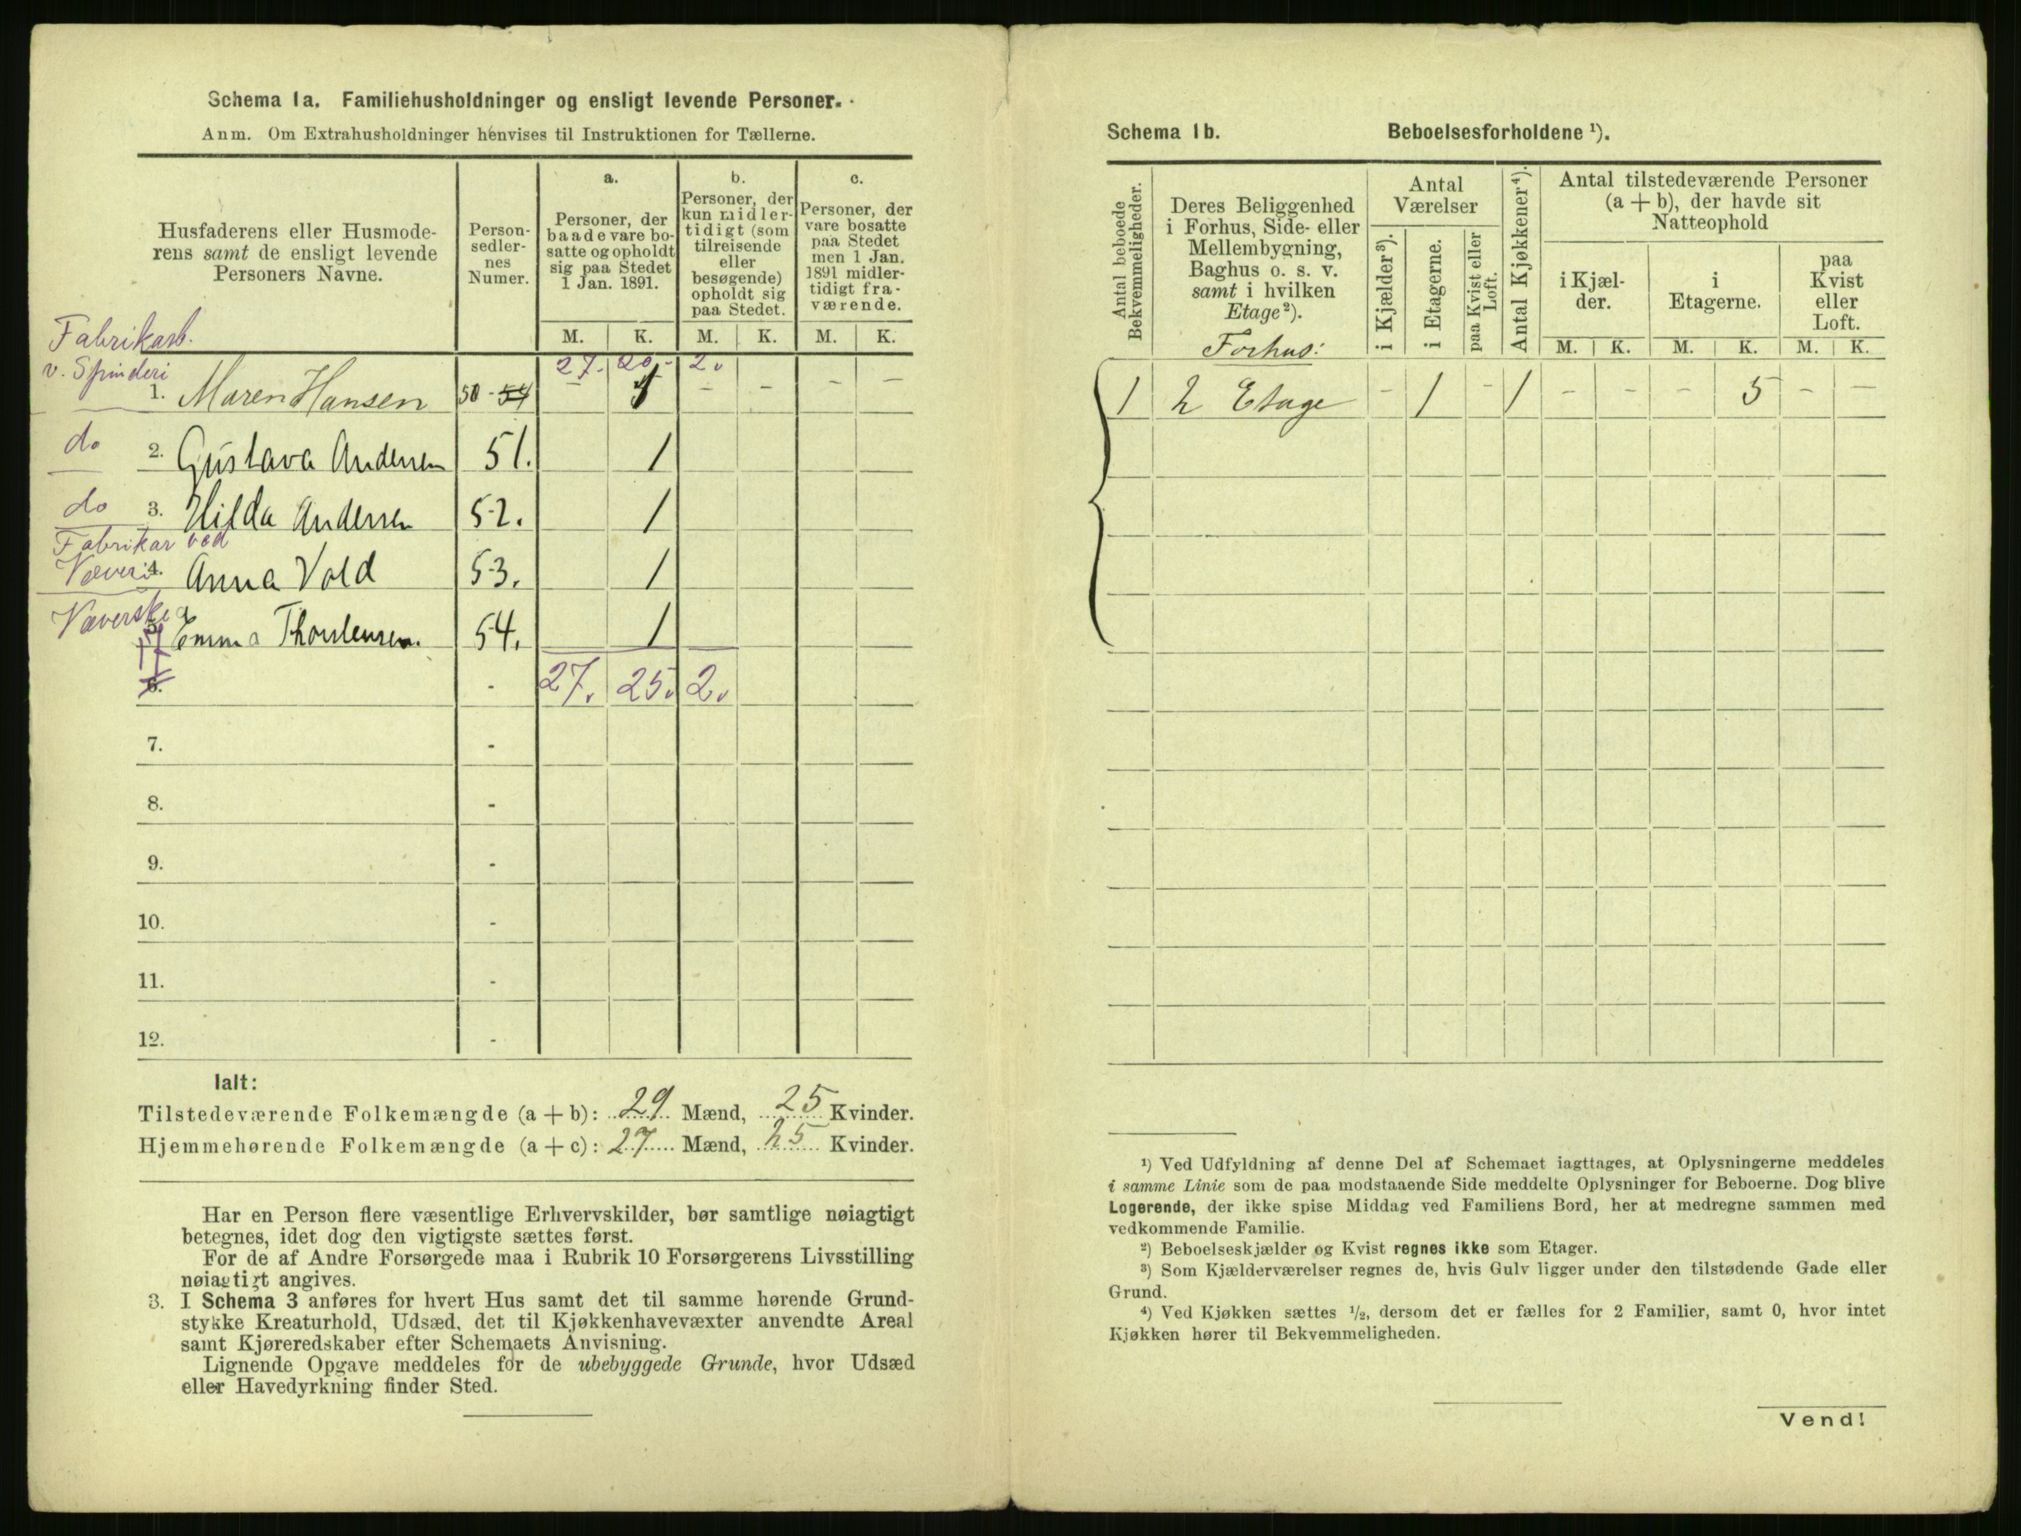 Schema 1a. Familiehusholdninger og ensligt levende Personer.
Anm. Om Extrahusholdninger henvises til Instruktionen for Tællerne.
Husfaderens eller Husmode-
rens samt de ensligt levende
Personers Navne.
Person-
sedler-
nes
Numer.
a.
Personer, der
baade vare bo-
satte og opholdt
sig paa Stedet
1 Jan. 1891.
b.
Personer, der
kun midler-
tidigt (som
tilreisende
eller
besøgende)
opholdt sig
paa Stedet.
c.
Personer, der
vare bosatte
paa Stedet
men 1 Jan.
1891 midler-
tidigt fra-
værende.
M. K. M. K. M. K.
Fabrikarb.
v. Spinderi
27. 20.- 2.
1. Maren Hansen 50 - 54 - 1 - - - -
do
2. Gustava Andersen 51. 1
do
3. Hilda Andersen 52. 1
Fabrikar ved
Væveri
4. Anna Vold 53. 1
Væverske
5. Emma Thorstensen. 54. 1
17
6. - 27. 25. 2.
7. -
8. -
9. -
10. -
11. -
12. -
Ialt:
Tilstedeværende Folkemængde (a + b): 29 Mænd, 25 Kvinder.
Hjemmehørende Folkemængde (a + c): 27 Mænd, 25 Kvinder.
Har en Person flere væsentlige Erhvervskilder, bør samtlige nøiagtigt
betegnes, idet dog den vigtigste sættes først.
For de af Andre Forsørgede maa i Rubrik 10 Forsørgerens Livsstilling
nøiagtigt angives.
3. I Schema 3 anføres for hvert Hus samt det til samme hørende Grund-
stykke Kreaturhold, Udsæd, det til Kjøkkenhavevæxter anvendte Areal
samt Kjøreredskaber efter Schemaets Anvisning.
Lignende Opgave meddeles for de ubebyggede Grunde, hvor Udsæd
eller Havedyrkning finder Sted.
Schema 1b. Beboelsesforholdene ¹).
Antal beboede
Bekvemmeligheder.
Deres Beliggenhed
i Forhus, Side- eller
Mellembygning,
Baghus o. s. v.
samt i hvilken
Etage²).
Antal
Værelser
i Kjælder³).
i Etagerne.
paa Kvist eller
Loft.
Antal Kjøkkener⁴).
Antal tilstedeværende Personer
(a + b), der havde sit
Natteophold
i Kjæl-
der.
i
Etagerne.
paa
Kvist
eller
Loft.
M. K. M. K. M. K.
Forhus:
1 2 Etage - 1 - 1 - - - 5 - -
¹) Ved Udfyldning af denne Del af Schemaet iagttages, at Oplysningerne meddeles
i samme Linie som de paa modstaaende Side meddelte Oplysninger for Beboerne. Dog blive
Logerende, der ikke spise Middag ved Familiens Bord, her at medregne sammen med
vedkommende Familie.
²) Beboelseskjælder og Kvist regnes ikke som Etager.
³) Som Kjælderværelser regnes de, hvis Gulv ligger under den tilstødende Gade eller
Grund.
⁴) Ved Kjøkken sættes ¹/₂, dersom det er fælles for 2 Familier, samt 0, hvor intet
Kjøkken hører til Bekvemmeligheden.
Vend!